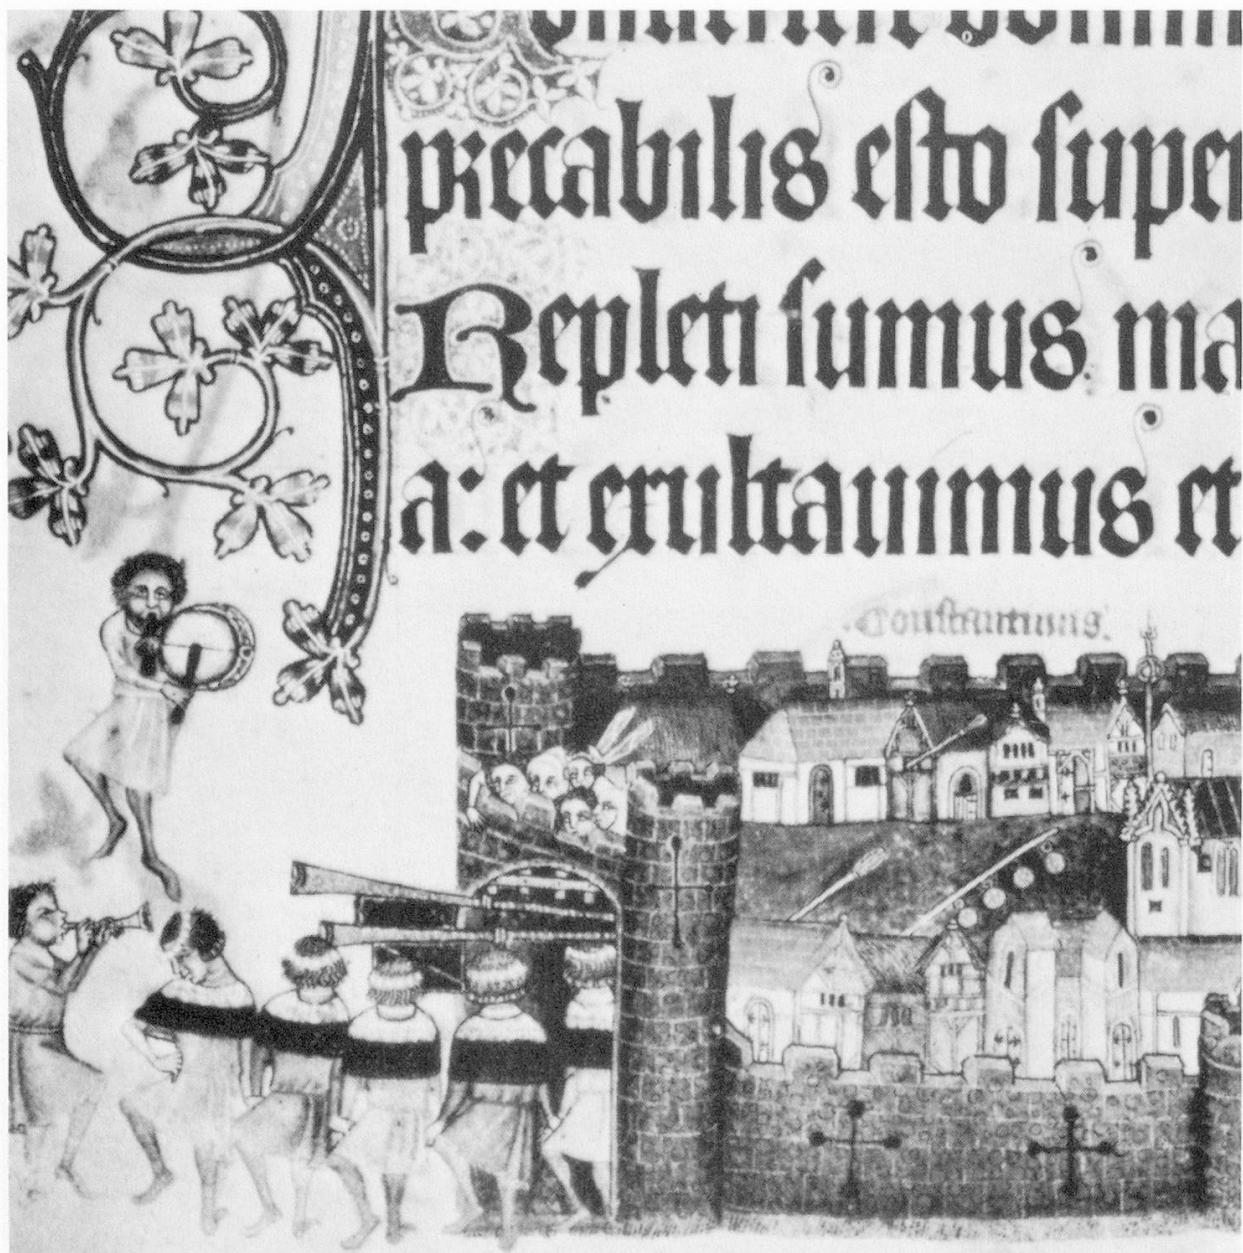 precabilis esto super
Repleti sumus ma
a: et exultauimus et
Constantinus